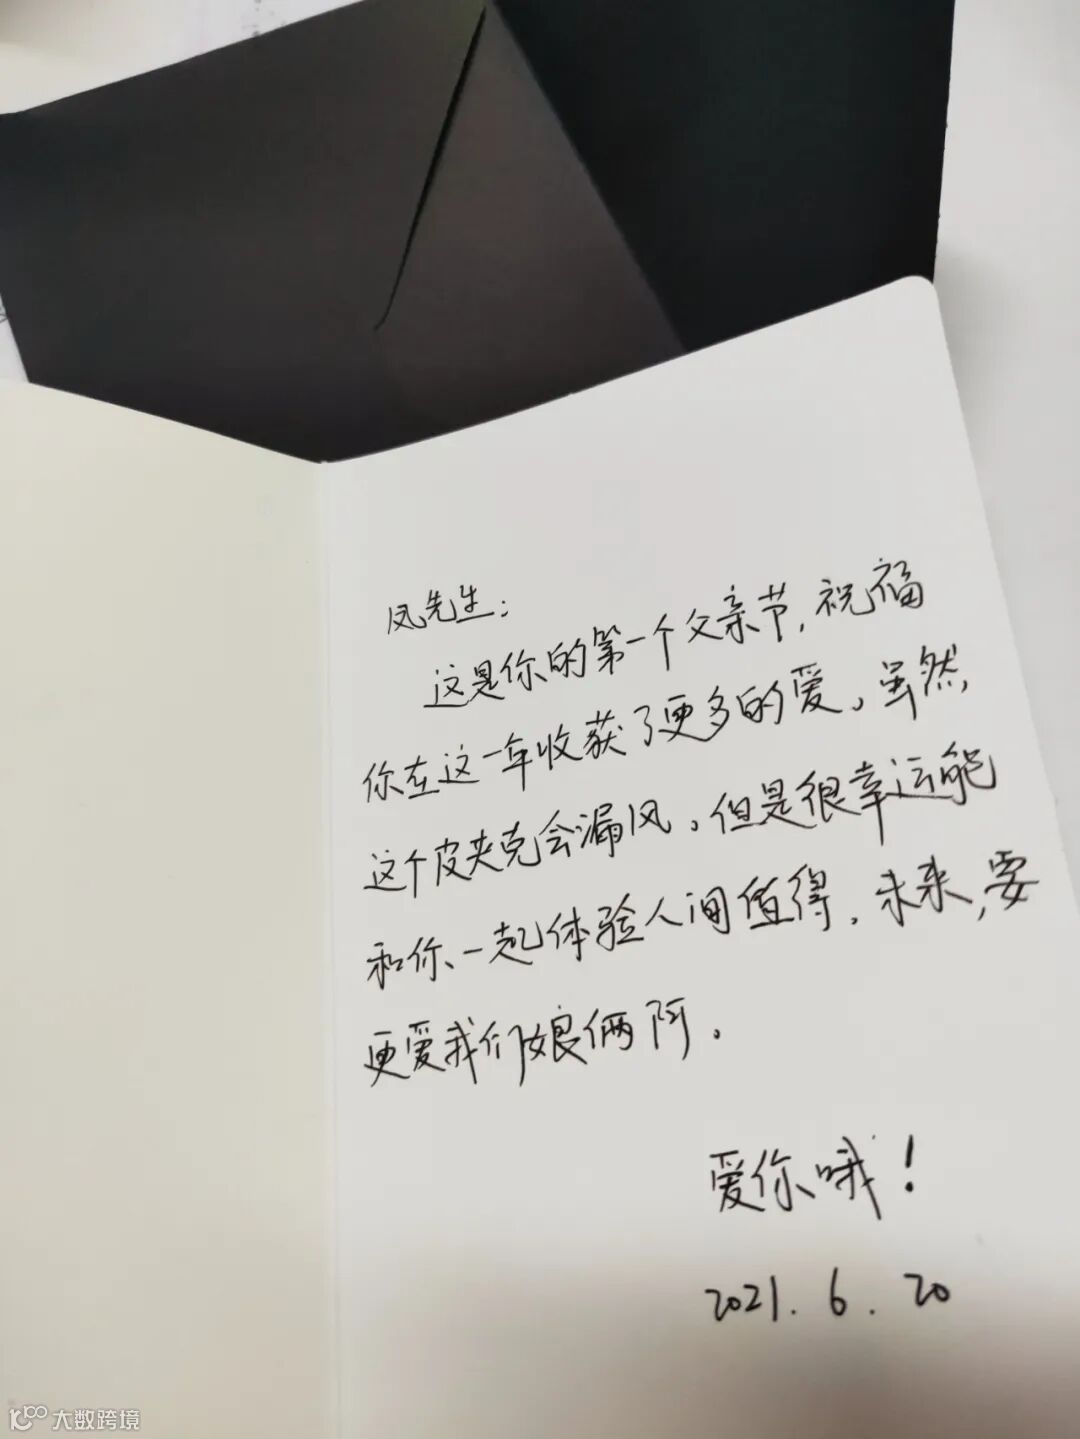 凤先生：
这是你的第一个父亲节，祝福
你在这一年收获了更多的爱。虽然，
这个皮夹克会漏风。但是很幸运能
和你一起体验人间值得。未来，要
更爱我们娘俩阿。
爱你哦！
2021.6.20
大数跨境